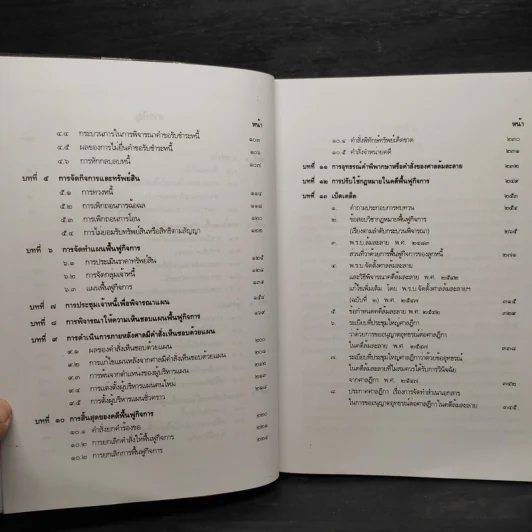 หน้า
๔.๔ กระบวนการในการพิจารณาคำขอรับชำระหนี้ ๑๐๓
๔.๕ ผลของการไม่ยื่นคำขอรับชำระหนี้ ๑๐๖
๔.๖ การหักกลบลบหนี้ ๑๐๗
บทที่ ๕ การจัดกิจการและทรัพย์สิน
๕.๑ การทวงหนี้ ๑๑๑
๕.๒ การเพิกถอนการฉ้อฉล
๕.๓ การเพิกถอนการโอน
๕.๔ การไม่ยอมรับทรัพย์สินหรือสิทธิตามสัญญา ๑๒๒
บทที่ ๖ การจัดทำแผนฟื้นฟูกิจการ
๖.๑ การประเมินราคาทรัพย์สิน
๖.๒ การจัดกลุ่มเจ้าหนี้
๖.๓ แผนฟื้นฟูกิจการ
บทที่ ๗ การประชุมเจ้าหนี้เพื่อพิจารณาแผน
บทที่ ๘ การพิจารณาให้ความเห็นชอบแผนฟื้นฟูกิจการ
บทที่ ๙ การดำเนินการภายหลังศาลมีคำสั่งเห็นชอบด้วยแผน ๒๐๐
๙.๑ ผลของคำสั่งเห็นชอบด้วยแผน ๒๐๐
๙.๒ การแก้ไขแผนหลังจากศาลมีคำสั่งเห็นชอบด้วยแผน
๙.๓ การพ้นจากตำแหน่งของผู้บริหารแผน
๙.๔ การแต่งตั้งผู้บริหารแผนคนใหม่
๙.๕ การตั้งผู้บริหารแผนชั่วคราว
บทที่ ๑๐ การสิ้นสุดของคดีฟื้นฟูกิจการ
๑๐.๑ คำสั่งยกคำร้องขอ
๑๐.๒ การยกเลิกคำสั่งให้ฟื้นฟูกิจการ
๑๐.๓ การยกเลิกการฟื้นฟูกิจการ
หน้า
๑๐.๔ คำสั่งพิทักษ์ทรัพย์เด็ดขาด ๒๓๐
๑๐.๕ คำสั่งจำหน่ายคดี ๒๓๑
บทที่ ๑๑ การอุทธรณ์คำพิพากษาหรือคำสั่งของศาลล้มละลาย ๒๓๒
บทที่ ๑๒ การปรับใช้กฎหมายในคดีฟื้นฟูกิจการ ๒๔๗
บทที่ ๑๓ เบ็ดเตล็ด ๒๕๓
๑. คำถามประกอบการทบทวน ๒๕๓
๒. ข้อสอบวิชากฎหมายฟื้นฟูกิจการ
(เรียงตามลำดับกระบวนพิจารณา) ๒๖๕
๓. พ.ร.บ.ล้มละลาย พ.ศ. ๒๔๘๓
ส่วนที่ว่าด้วยการฟื้นฟูกิจการของลูกหนี้
๔. พ.ร.บ.จัดตั้งศาลล้มละลาย
และวิธีพิจารณาคดีล้มละลาย พ.ศ. ๒๕๔๒
แก้ไขเพิ่มเติม โดย พ.ร.บ.จัดตั้งศาลล้มละลายฯ
(ฉบับที่ ๒) พ.ศ. ๒๕๕๘
๕. ข้อกำหนดคดีล้มละลาย พ.ศ.
๖. ระเบียบที่ประชุมใหญ่ศาลฎีกา
ว่าด้วยการขออนุญาตอุทธรณ์ต่อศาลฎีกา
ในคดีล้มละลาย พ.ศ.
๗. ระเบียบที่ประชุมใหญ่ศาลฎีกาว่าด้วยอุทธรณ์
ในคดีล้มละลายที่ไม่สมควรได้รับการวินิจฉัย
จากศาลฎีกา พ.ศ.
๘. ประกาศศาลฎีกา เรื่องการจัดทำสำเนาเอกสาร
ในการขออนุญาตอุทธรณ์ต่อศาลฎีกาในคดีล้มละลาย